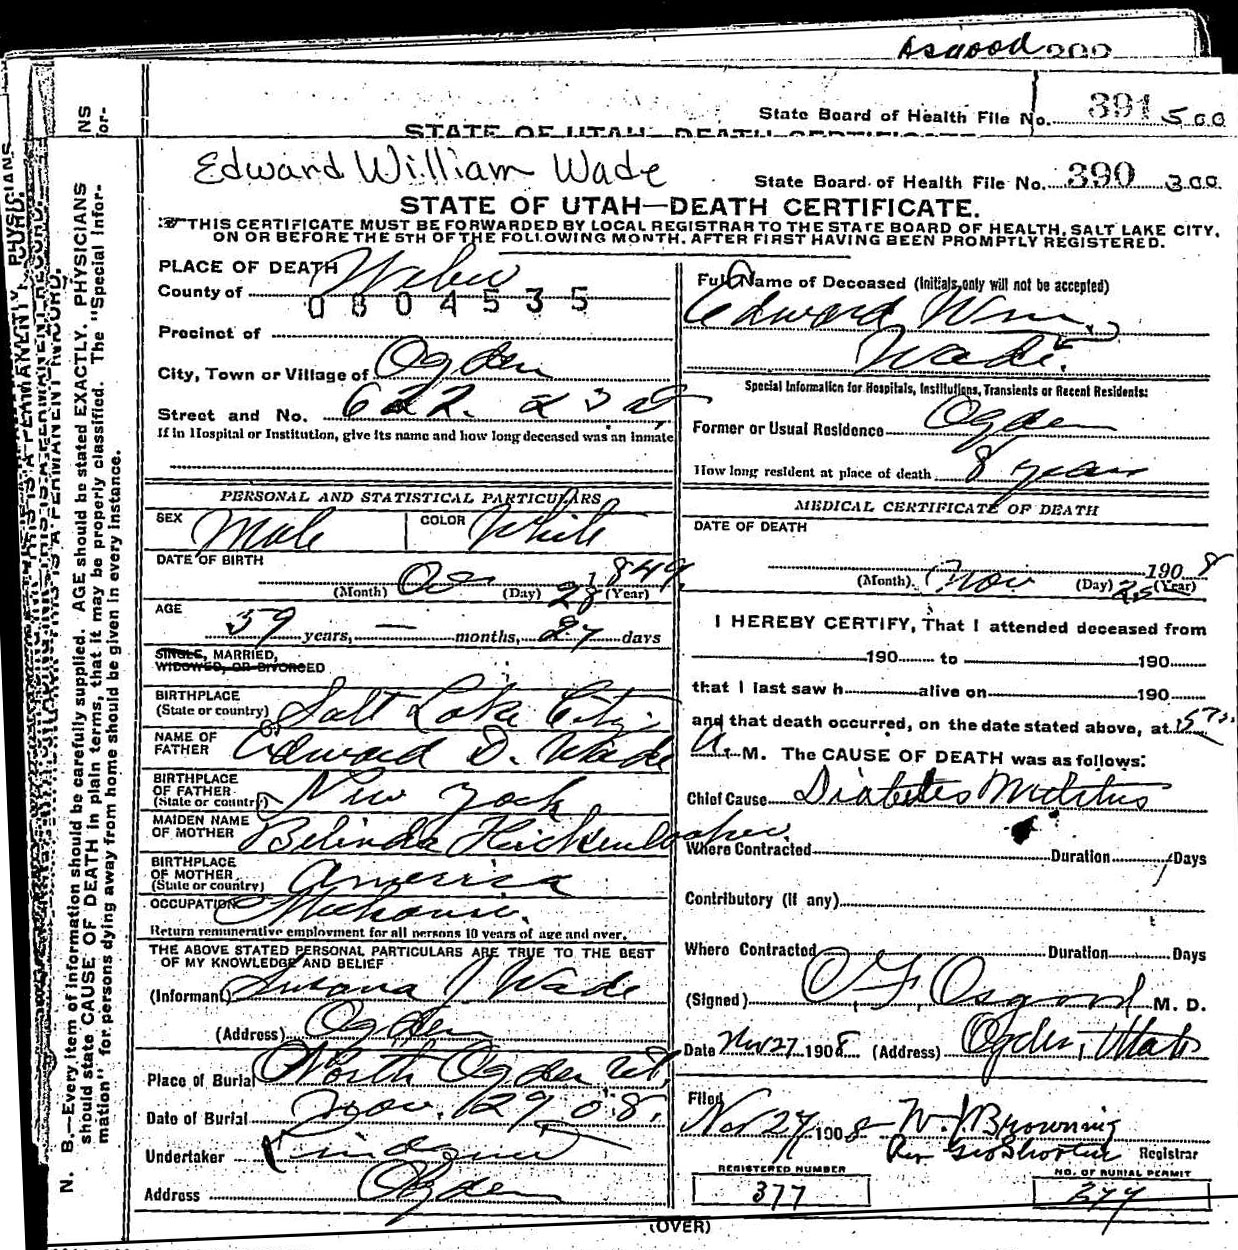 Osgood 392
State Board of Health File No. 391 500
STATE OF UTAH—DEATH CERTIFICATE
Edward William Wade
State Board of Health File No. 390 300
STATE OF UTAH—DEATH CERTIFICATE.
THIS CERTIFICATE MUST BE FORWARDED BY LOCAL REGISTRAR TO THE STATE BOARD OF HEALTH, SALT LAKE CITY,
ON OR BEFORE THE 5TH OF THE FOLLOWING MONTH, AFTER FIRST HAVING BEEN PROMPTLY REGISTERED.
PLACE OF DEATH
County of Weber
0804535
Precinct of
City, Town or Village of Ogden
Street and No. 622. 23 st
If in Hospital or Institution, give its name and how long deceased was an inmate
PERSONAL AND STATISTICAL PARTICULARS
SEX Male COLOR White
DATE OF BIRTH
(Month) Oc (Day) 28 (Year) 1849
AGE
59 years, — months, 27 days
SINGLE, MARRIED,
WIDOWED, OR DIVORCED
BIRTHPLACE
(State or country) Salt Lake City
NAME OF
FATHER Edward D. Wade
BIRTHPLACE
OF FATHER
(State or country) New York
MAIDEN NAME
OF MOTHER Belinda Hickenlooper
BIRTHPLACE
OF MOTHER
(State or country) America
OCCUPATION
Return remunerative employment for all persons 10 years of age and over.
THE ABOVE STATED PERSONAL PARTICULARS ARE TRUE TO THE BEST
OF MY KNOWLEDGE AND BELIEF
(Informant) Susana J Wade
(Address) Ogden
Place of Burial North Ogden Ut.
Date of Burial Nov. 29 08.
Undertaker Lindquist
Address Ogden
Full Name of Deceased (Initials only will not be accepted)
Edward Wm.
Wade.
Special Information for Hospitals, Institutions, Transients or Recent Residents:
Former or Usual Residence Ogden
How long resident at place of death 8 years
MEDICAL CERTIFICATE OF DEATH
DATE OF DEATH
(Month). Nov (Day) 25 (Year) 1908
I HEREBY CERTIFY, That I attended deceased from
190 to 190
that I last saw h alive on 190
and that death occurred, on the date stated above, at
A. M. The CAUSE OF DEATH was as follows:
Chief Cause Diabetes Melitus
Where Contracted Duration Days
Contributory (If any)
Where Contracted Duration Days
(Signed) O. F. Osgood M. D.
Date Nov 27 1908 (Address) Ogden, Utah
Filed
Nov 27 1908 W. J. Browning
Per Geo Shorten Registrar
REGISTERED NUMBER
377
NO. OF BURIAL PERMIT
377
(OVER)
N. B.—Every item of information should be carefully supplied. AGE should be stated EXACTLY. PHYSICIANS
should state CAUSE OF DEATH in plain terms, that it may be properly classified. The "Special Infor-
mation" for persons dying away from home should be given in every instance.